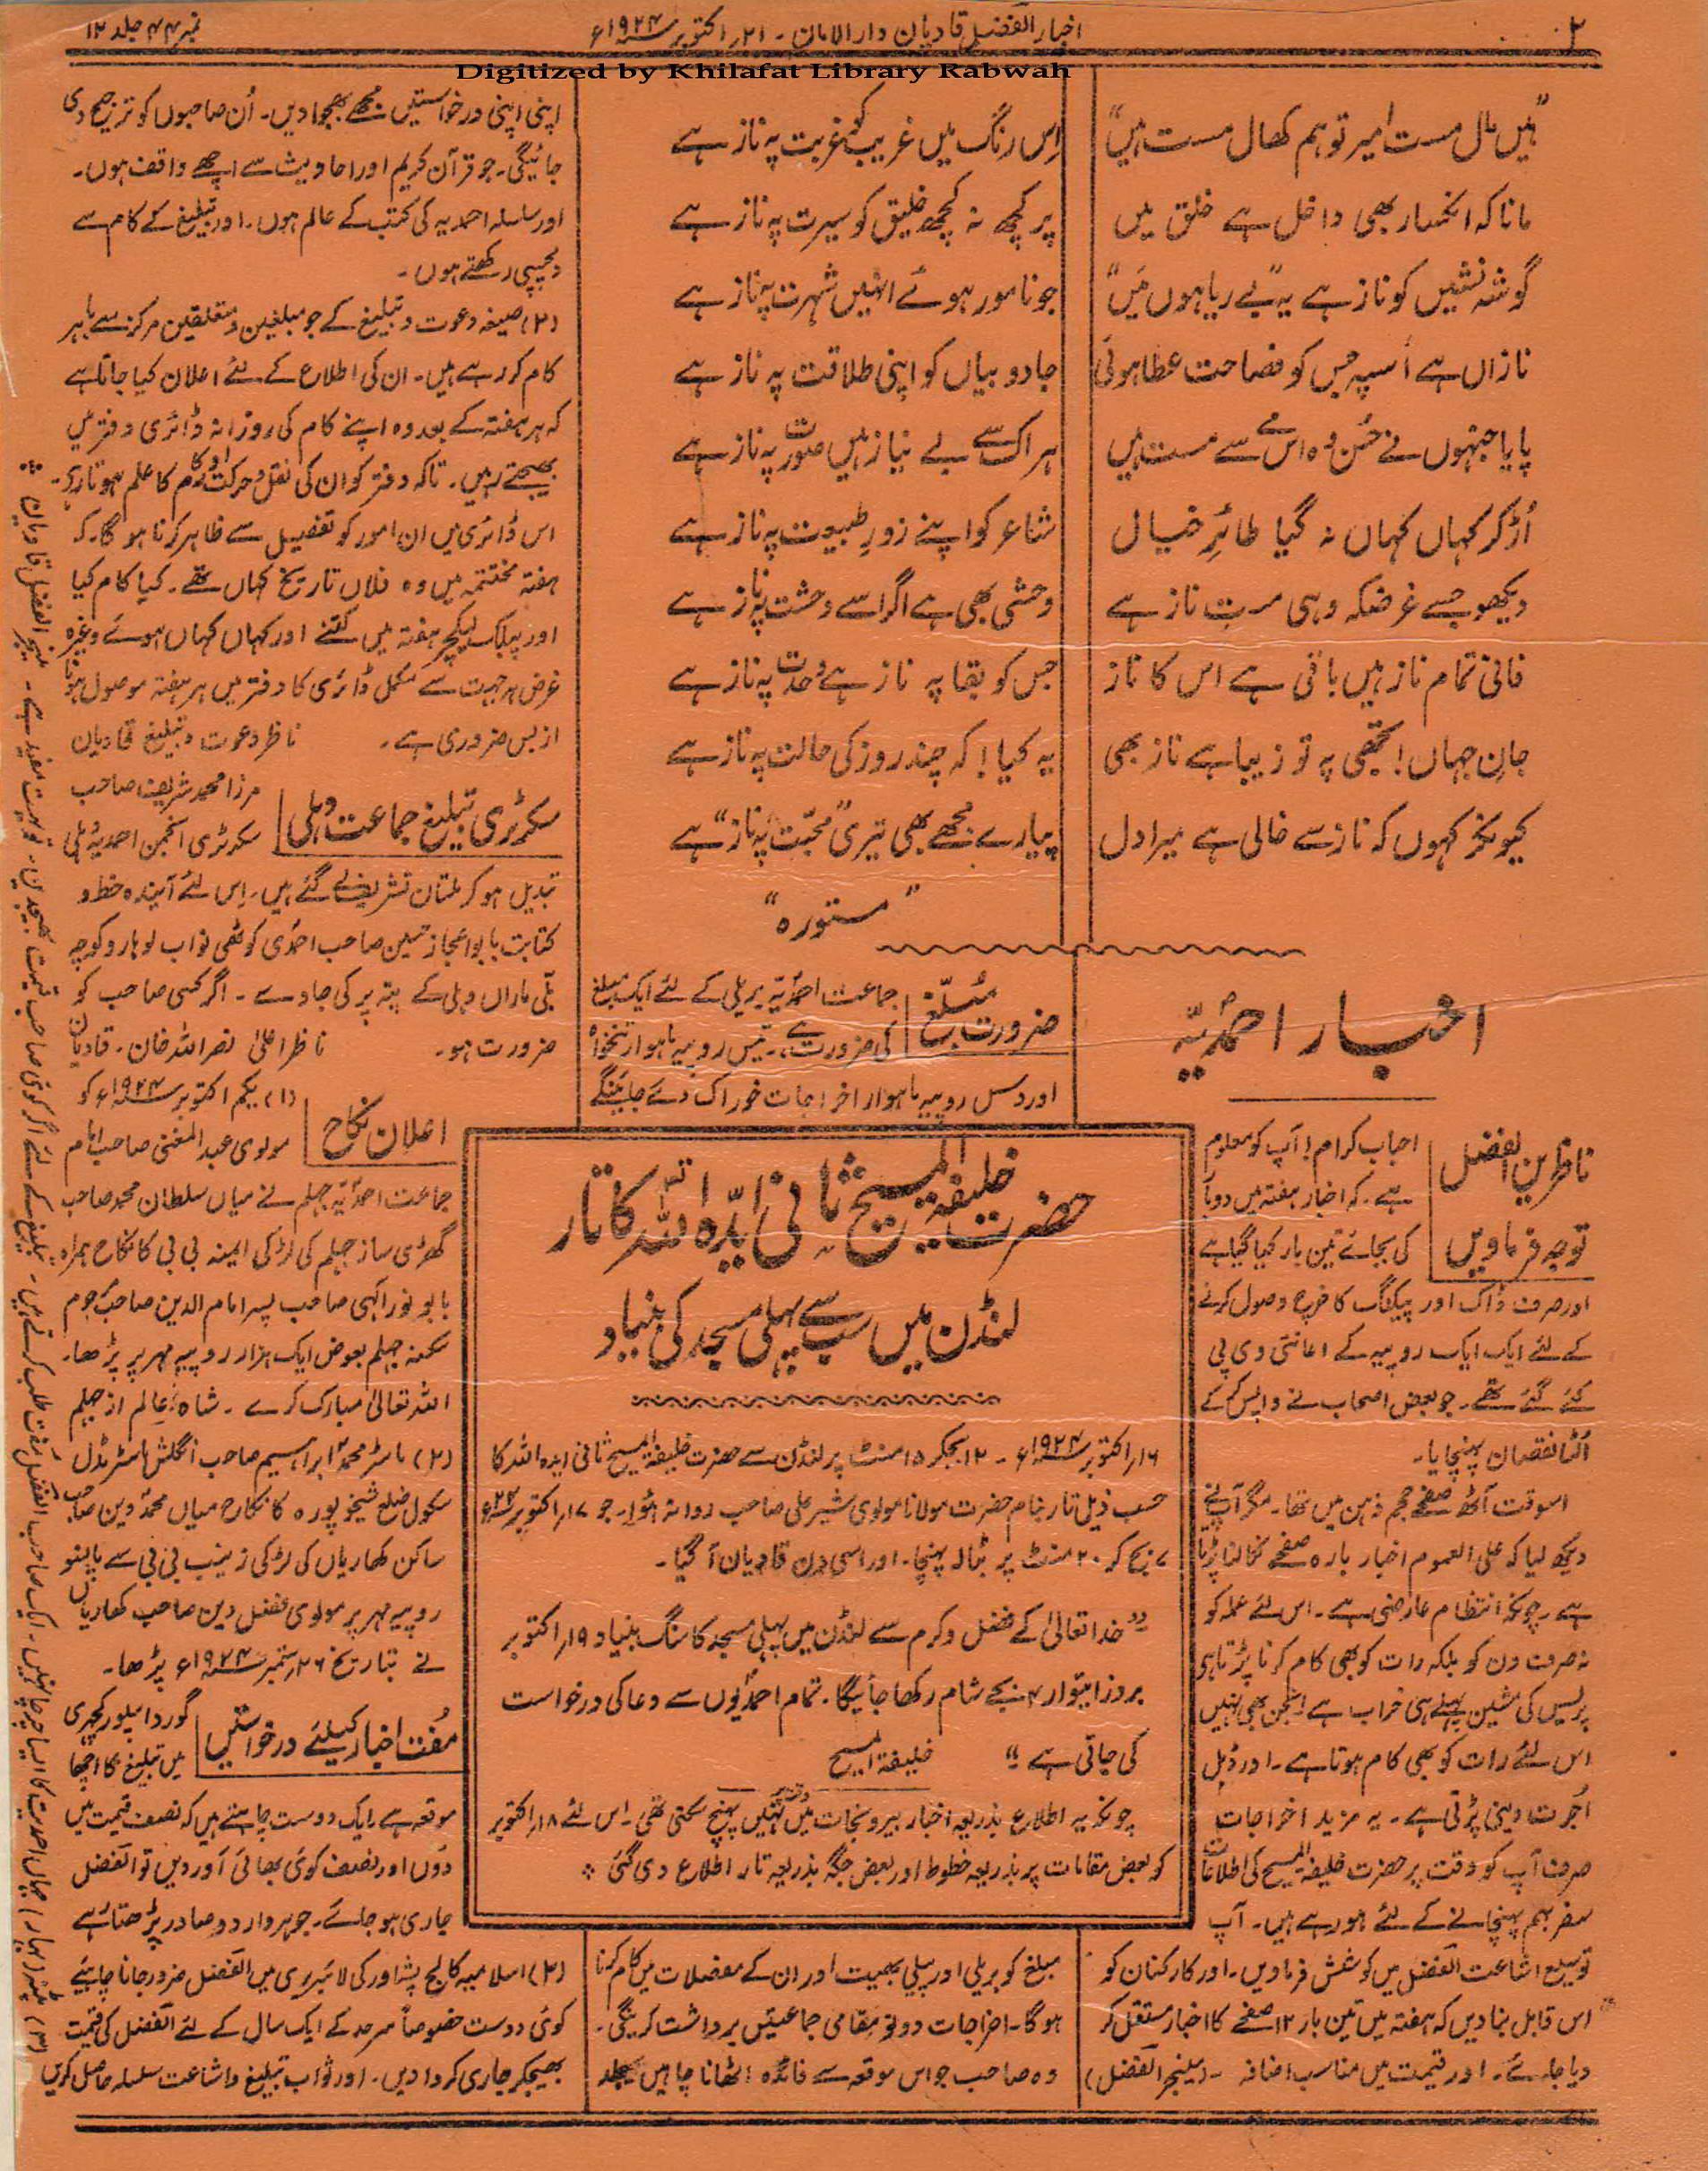 ۲
اخبار الفضل قادیان دارالامان - ۲۱؍ اکتوبر ۱۹۲۴ء
نمبر ۴۴ جلد ۱۲
Digitized by Khilafat Library Rabwah
"ہیں مال مست امیر تو ہم کھال مست ہیں" اِس رنگ میں غریب کو غربت پہ ناز ہے
مانا کہ انکسار بھی داخل ہے خلق میں پر کچھ نہ کچھ خلیق کو سیرت پہ ناز ہے
گوشہ نشیں کو ناز ہے یہ "بے ریا ہوں میں" جو نامور ہوئے انہیں شہرت پہ ناز ہے
نازاں ہے اُسپہ جس کو فصاحت عطا ہوئی جادو بیاں کو اپنی طلاقت پہ ناز ہے
پایا جنہوں نے حُسن وہ اس مے سے مست ہیں ہر اک سے بے نیاز ہیں صورت پہ ناز ہے
اُڑ کر کہاں کہاں نہ گیا طائرِ خیال شاعر کو اپنے زورِ طبیعت پہ ناز ہے
دیکھو جسے غرضکہ وہی مستِ ناز ہے وحشی بھی ہے اگر اسے وحشت پہ ناز ہے
فانی تمام ناز ہیں باقی ہے اس کا ناز جس کو بقا پہ ناز ہے وحدت پہ ناز ہے
جانِ جہاں! تجھی پہ تو زیبا ہے ناز بھی یہ کیا! کہ چند روز کی حالت پہ ناز ہے
کیونکر کہوں کہ ناز سے خالی ہے میرا دل پیارے مجھے بھی تیری "محبّت پہ ناز" ہے
"مستورہ"
اخبار احمدیّہ
ناظرین الفضل
توجہ فرماویں
احباب کرام! آپ کو معلوم
ہے۔ کہ اخبار ہفتہ میں دو بار
کی بجائے تین بار کیا گیا ہے
اور صرف ڈاک اور پیکنگ کا خرچ وصول کرنے
کے لئے ایک ایک روپیہ کے اعانتی وی پی
کئے گئے تھے۔ جو بعض اصحاب نے واپس کر کے
اُلٹا نقصان پہنچایا۔
اسوقت آٹھ صفحے حجم ذہن میں تھا۔ مگر آپنے
دیکھ لیا کہ علی العموم اخبار بارہ صفحے نکالنا پڑتا
ہے۔ چونکہ انتظام عارضی ہے۔ اس لئے عملہ کو
نہ صرف دن کو بلکہ رات کو بھی کام کرنا پڑتا ہی
پریس کی مشین پہلے ہی خراب ہے انجن بھی نہیں
اس لئے رات کو بھی کام ہوتا ہے۔ اور ڈبل
اُجرت دینی پڑتی ہے۔ یہ مزید اخراجات
صرف آپ کو وقت پر حضرت خلیفۃ المسیح کی اطلاعات
سفر بہم پہنچانے کے لئے ہو رہے ہیں۔ آپ
توسیع اشاعت الفضل میں کوشش فرماویں۔ اور کارکنان کو
اس قابل بنا دیں کہ ہفتہ میں تین بار ۱۲ صفحے کا اخبار مستقل کر
دیا جائے۔ اور قیمت میں مناسب اضافہ۔ (مینجر الفضل)
ضرورت مبلّغ
جماعت احمدیّہ بریلی کے لئے ایک مبلغ
کی ضرورت ہے۔ تیس روپیہ ماہوار تنخواہ
اور دس روپیہ ماہوار اخراجات خوراک دئے جائینگے
حضرت خلیفۃ المسیح ثانی ایّدہ اللہ کا تار
لنڈن میں سب سے پہلی مسجد کی بنیاد
۱۶؍ اکتوبر ۱۹۲۴ء - ۱۲ بجکر ۱۵ منٹ پر لنڈن سے حضرت خلیفۃ المسیح ثانی ایدہ اللہ کا
حسب ذیل تار بنام حضرت مولانا مولوی شیر علی صاحب روانہ ہوا۔ جو ۱۷؍ اکتوبر ۲۴ء
۷ بج کر ۲۰ منٹ پر بٹالہ پہنچا۔ اور اسی دن قادیان آ گیا۔
"خدا تعالیٰ کے فضل و کرم سے لنڈن میں پہلی مسجد کا سنگ بنیاد ۱۹؍ اکتوبر
بروز اتوار ۴ بجے شام رکھا جائیگا۔ تمام احمدیوں سے دعا کی درخواست
کی جاتی ہے" خلیفۃ المسیح
چونکہ یہ اطلاع بذریعہ اخبار بیرونجات میں وقت پر نہیں پہنچ سکتی تھی۔ اس لئے ۱۸؍ اکتوبر
کو بعض مقامات پر بذریعہ خطوط اور بعض جگہ بذریعہ تار اطلاع دی گئی ؞
مبلغ کو بریلی اور پیلی بھیت اور ان کے مفصلات میں کام کرنا
ہوگا۔ اخراجات دونو مقامی جماعتیں برداشت کرینگی۔
وہ صاحب جو اس موقعہ سے فائدہ اٹھانا چاہیں جلد
اپنی اپنی درخواستیں مجھے بھجوا دیں۔ اُن صاحبوں کو ترجیح دی
جائیگی۔ جو قرآن کریم اور احادیث سے اچھے واقف ہوں۔
اور سلسلہ احمدیہ کی کتب کے عالم ہوں۔ اور تبلیغ کے کام سے
دلچسپی رکھتے ہوں۔
(۲) صیغہ دعوت و تبلیغ کے جو مبلغین و متعلقین مرکز سے باہر
کام کر رہے ہیں۔ ان کی اطلاع کے لئے اعلان کیا جاتا ہے
کہ ہر ہفتہ کے بعد وہ اپنے کام کی روزانہ ڈائری دفتر میں
بھیجتے رہیں۔ تاکہ دفتر کو ان کی نقل و حرکت اور کام کا علم ہوتا رہے۔
اس ڈائری میں ان امور کو تفصیل سے ظاہر کرنا ہوگا۔ کہ
ہفتہ مختتمہ میں وہ فلاں تاریخ کہاں تھے۔ کیا کام کیا
اور پبلک لیکچر ہفتہ میں کتنے اور کہاں کہاں ہوئے وغیرہ
غرض ہر جہت سے مکمل ڈائری کا دفتر میں ہر ہفتہ موصول ہونا
از بس ضروری ہے۔ ناظر دعوت و تبلیغ قادیان
سکرٹری تبلیغ جماعت دہلی
مرزا محمد شریف صاحب
سکرٹری انجمن احمدیہ دہلی
تبدیل ہو کر ملتان تشریف لے گئے ہیں۔ اِس لئے آیندہ خط و
کتابت بابو اعجاز حسین صاحب احمدی کوٹھی نواب لوہارو کوچہ
بلّی ماراں دہلی کے پتہ پر کی جاوے۔ اگر کسی صاحب کو
ضرورت ہو۔ ناظر اعلیٰ نصر اللہ خان۔ قادیان
اعلان نکاح
(۱) یکم اکتوبر ۱۹۲۴ء کو
مولوی عبد المغنی صاحب امام
جماعت احمدیّہ جہلم نے میاں سلطان محمد صاحب
گھڑی ساز جہلم کی لڑکی امینہ بی بی کا نکاح ہمراہ
بابو نور الٰہی صاحب پسر امام الدین صاحب مرحوم
سکنہ جہلم بعوض ایک ہزار روپیہ مہر پر پڑھا۔
اللہ تعالیٰ مبارک کرے۔ شاہ عالم از جہلم
(۲) ماسٹر محمد ابراہیم صاحب انگلش ماسٹر مڈل
سکول ضلع شیخوپورہ کا نکاح میاں محمد دین صاحب
ساکن کھاریاں کی لڑکی زینب بی بی سے پانسو
روپیہ مہر پر مولوی فضل دین صاحب کھاریاں
نے بتاریخ ۲۶ ستمبر ۱۹۲۴ء پڑھا۔
مُفت اخبار کیلئے درخواستیں
گورداسپور کچہری
میں تبلیغ کا اچھا
موقعہ ہے۔ ایک دوست چاہتے ہیں کہ نصف قیمت میں
دوں اور نصف کوئی بھائی اور دیں تو الفضل
جاری ہو جائے۔ جو ہر وارد و صادر پڑھتا رہے
(۲) اسلامیہ کالج پشاور کی لائبریری میں الفضل ضرور جانا چاہئیے
کوئی دوست خصوصاً سرحد کے ایک سال کے لئے الفضل کی قیمت
بھیجکر جاری کروا دیں۔ اور ثواب تبلیغ و اشاعت سلسلہ حاصل کریں